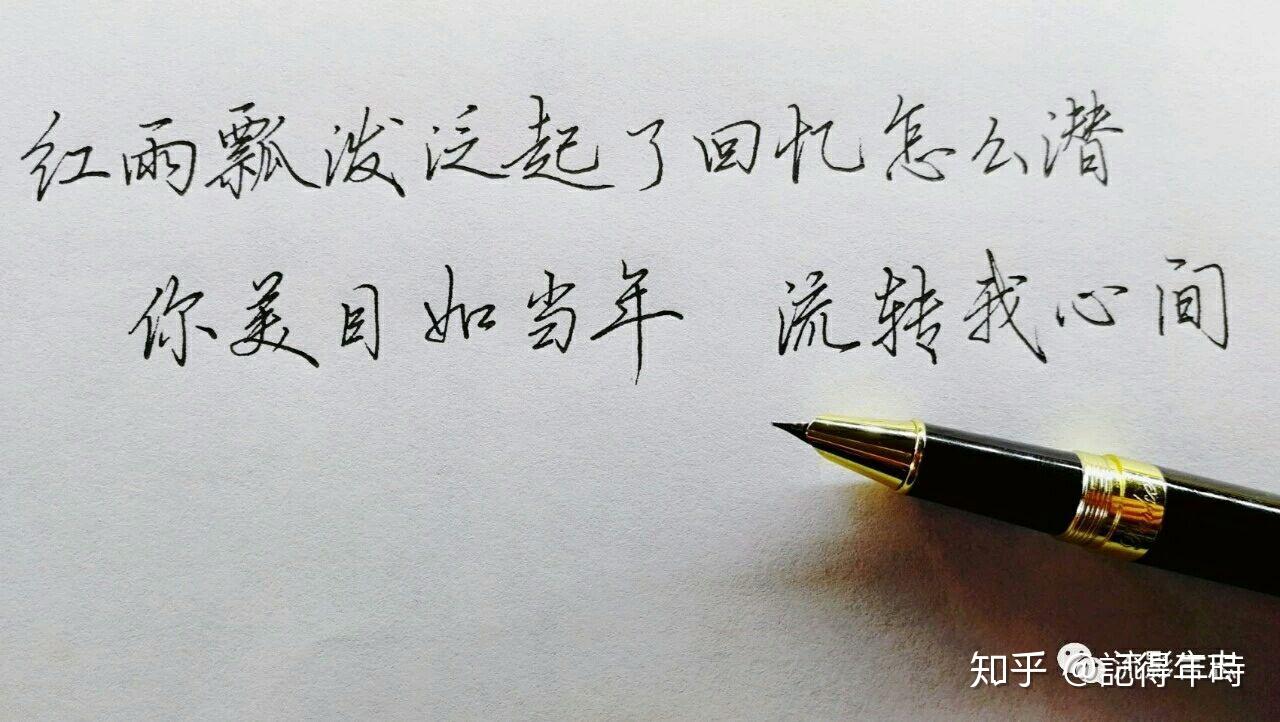 红雨瓢泼泛起了回忆怎么潜
你美目如当年 流转我心间
知乎 @記得年時